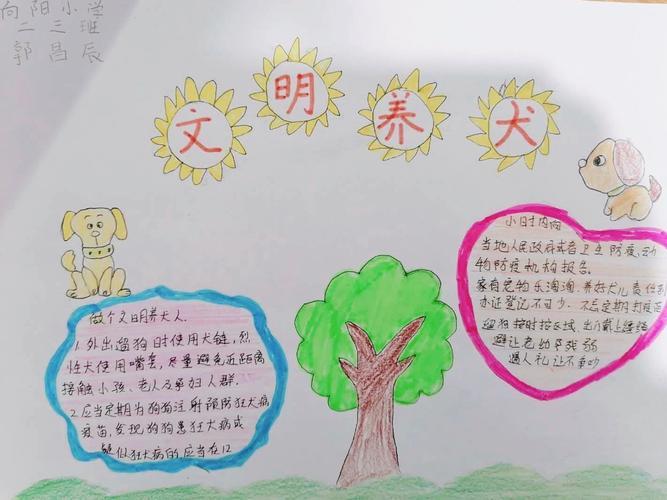 向阳小学
二三班
郭昌辰
文明养犬
做个文明养犬人
1.外出遛狗时使用犬链,烈
性犬使用嘴套,尽量避免近距离
接触小孩、老人及孕妇人群.
2.应当定期为狗狗注射预防狂犬病
疫苗,发现狗狗患狂犬病或
疑似狂犬病的应当在12
小时内向
当地人民政府或者卫生防疫、动
物防疫机构报告.
家有宠物乐淘淘,养好犬儿责任到
办证登记不可少.不忘定期打疫苗
遛狗按时按区域,出门戴上
避让老幼及残弱
遇人礼让不重吵